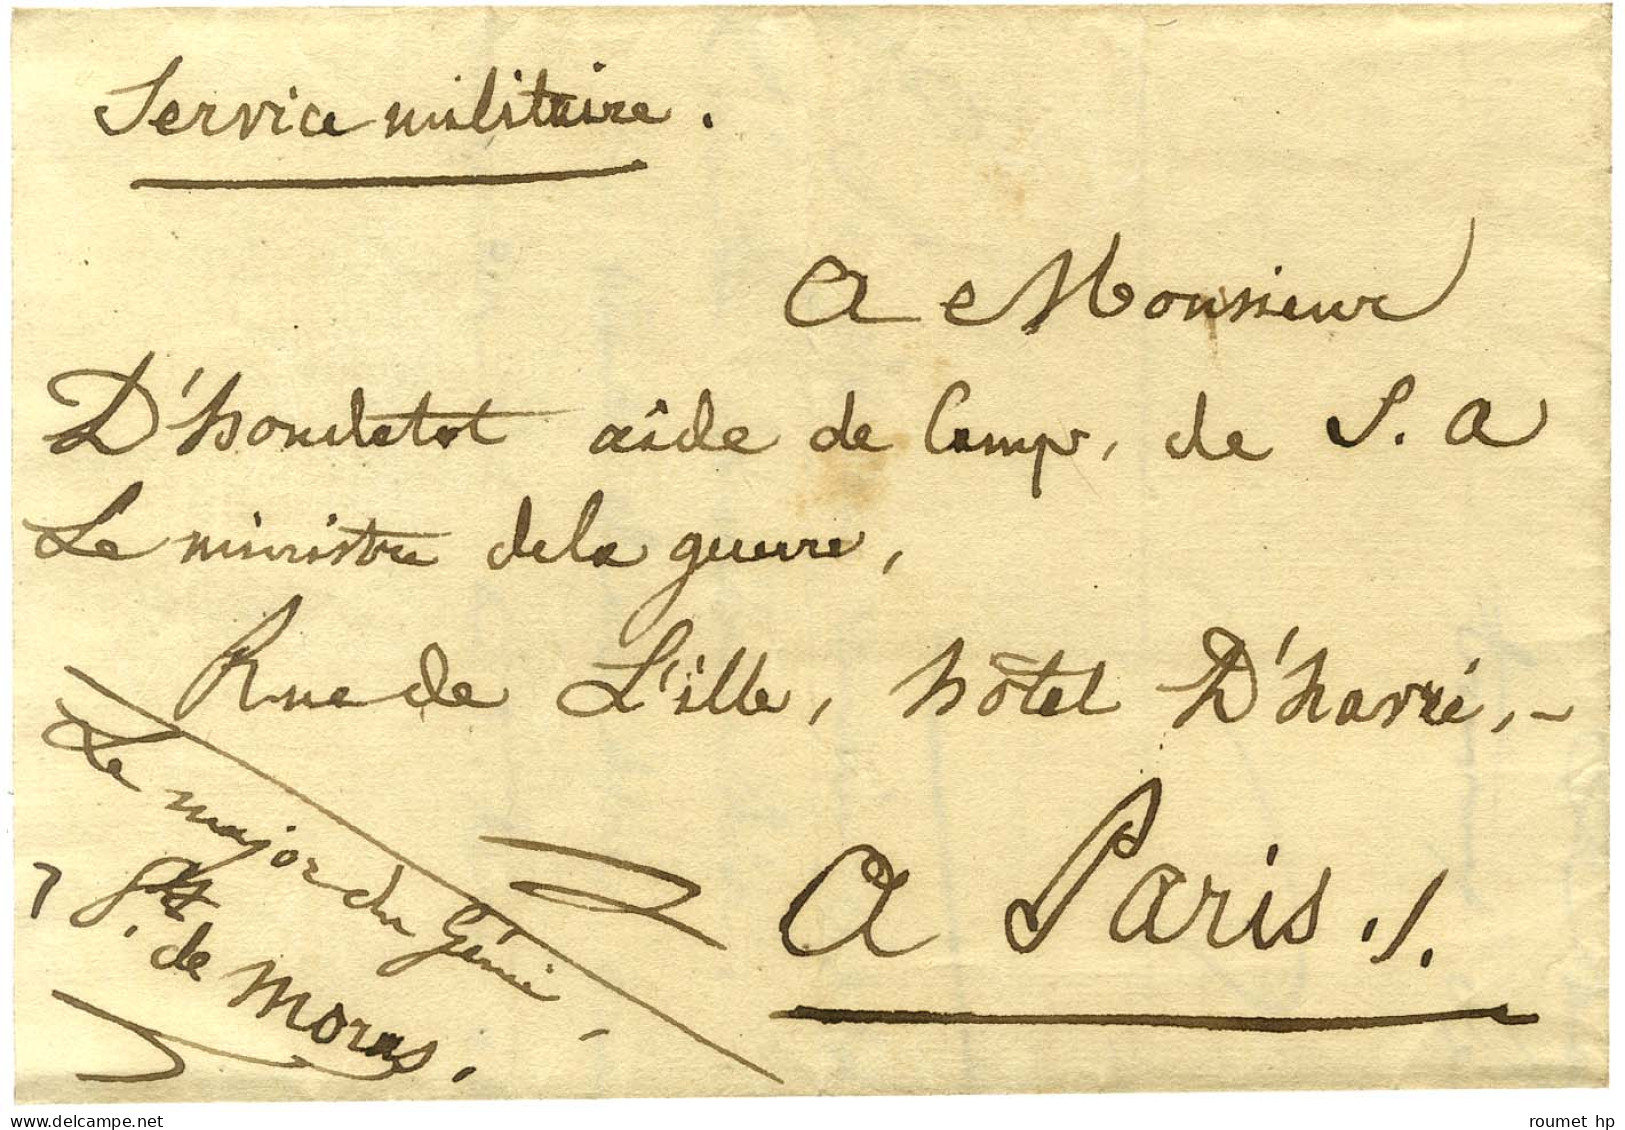 Service militaire.
A Monsieur
D'houdetot aide de Camp, de S. A
Le ministre de la guerre,
Rue de L'ille, hôtel D'havré, -
A Paris ./.
Le major du Génie,
de Moras.
DELCAMPE.NET
roumet hp